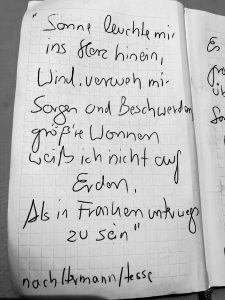 "Sonne leuchte mir
ins Herz hinein,
Wind verweh mir
Sorgen und Beschwerden
größ're Wonnen
weiß ich nicht auf
Erden,
Als in Franken unterwegs
zu sein"
nach Hermann Hesse
Es